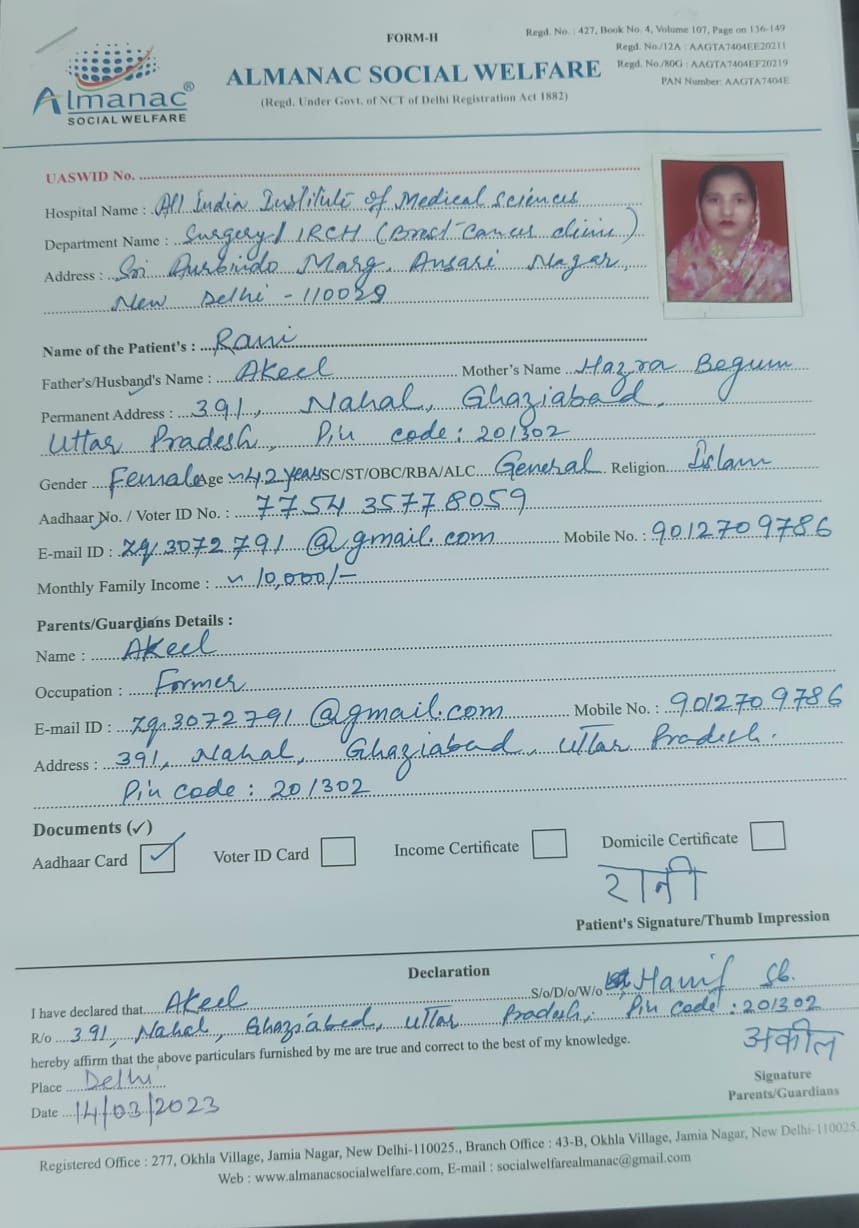 FORM-H
Regd. No. : 427, Book No. 4, Volume 107, Page on 136-149
Regd. No./12A : AAGTA7404EE20211
Regd. No./80G : AAGTA7404EF20219
PAN Number: AAGTA7404E
Almanac®
SOCIAL WELFARE
ALMANAC SOCIAL WELFARE
(Regd. Under Govt. of NCT of Delhi Registration Act 1882)
UASWID No.
Hospital Name : All India Institute of Medical Sciences
Department Name : Surgery / IRCH (Brest Cancer clinic)
Address : Sri Aurbindo Marg, Ansari Nagar,
New Delhi - 110029
Name of the Patient's : Rani
Father's/Husband's Name : Akeel Mother's Name Hazra Begum
Permanent Address : 391, Nahal, Ghaziabad,
Uttar Pradesh, Pin code : 201302
Gender Female Age ~42 years SC/ST/OBC/RBA/ALC General Religion Islam
Aadhaar No. / Voter ID No. : 7754 3577 8059
E-mail ID : zq.3072791@gmail.com Mobile No. : 9012709786
Monthly Family Income : ~ 10,000/-
Parents/Guardians Details :
Name : Akeel
Occupation : Former
E-mail ID : zq.3072791@gmail.com Mobile No. : 9012709786
Address : 391, Nahal, Ghaziabad, Uttar Pradesh.
Pin code : 201302
Documents (✓)
Aadhaar Card ✓ Voter ID Card Income Certificate Domicile Certificate
रानी
Patient's Signature/Thumb Impression
Declaration
I have declared that Akeel S/o/D/o/W/o Hanif Sb.
R/o 391, Nahal, Ghaziabad, Uttar Pradesh, Pin code : 201302
hereby affirm that the above particulars furnished by me are true and correct to the best of my knowledge.
अकील
Place Delhi
Signature
Date 14/03/2023
Parents/Guardians
Registered Office : 277, Okhla Village, Jamia Nagar, New Delhi-110025., Branch Office : 43-B, Okhla Village, Jamia Nagar, New Delhi-110025.
Web : www.almanacsocialwelfare.com, E-mail : socialwelfarealmanac@gmail.com